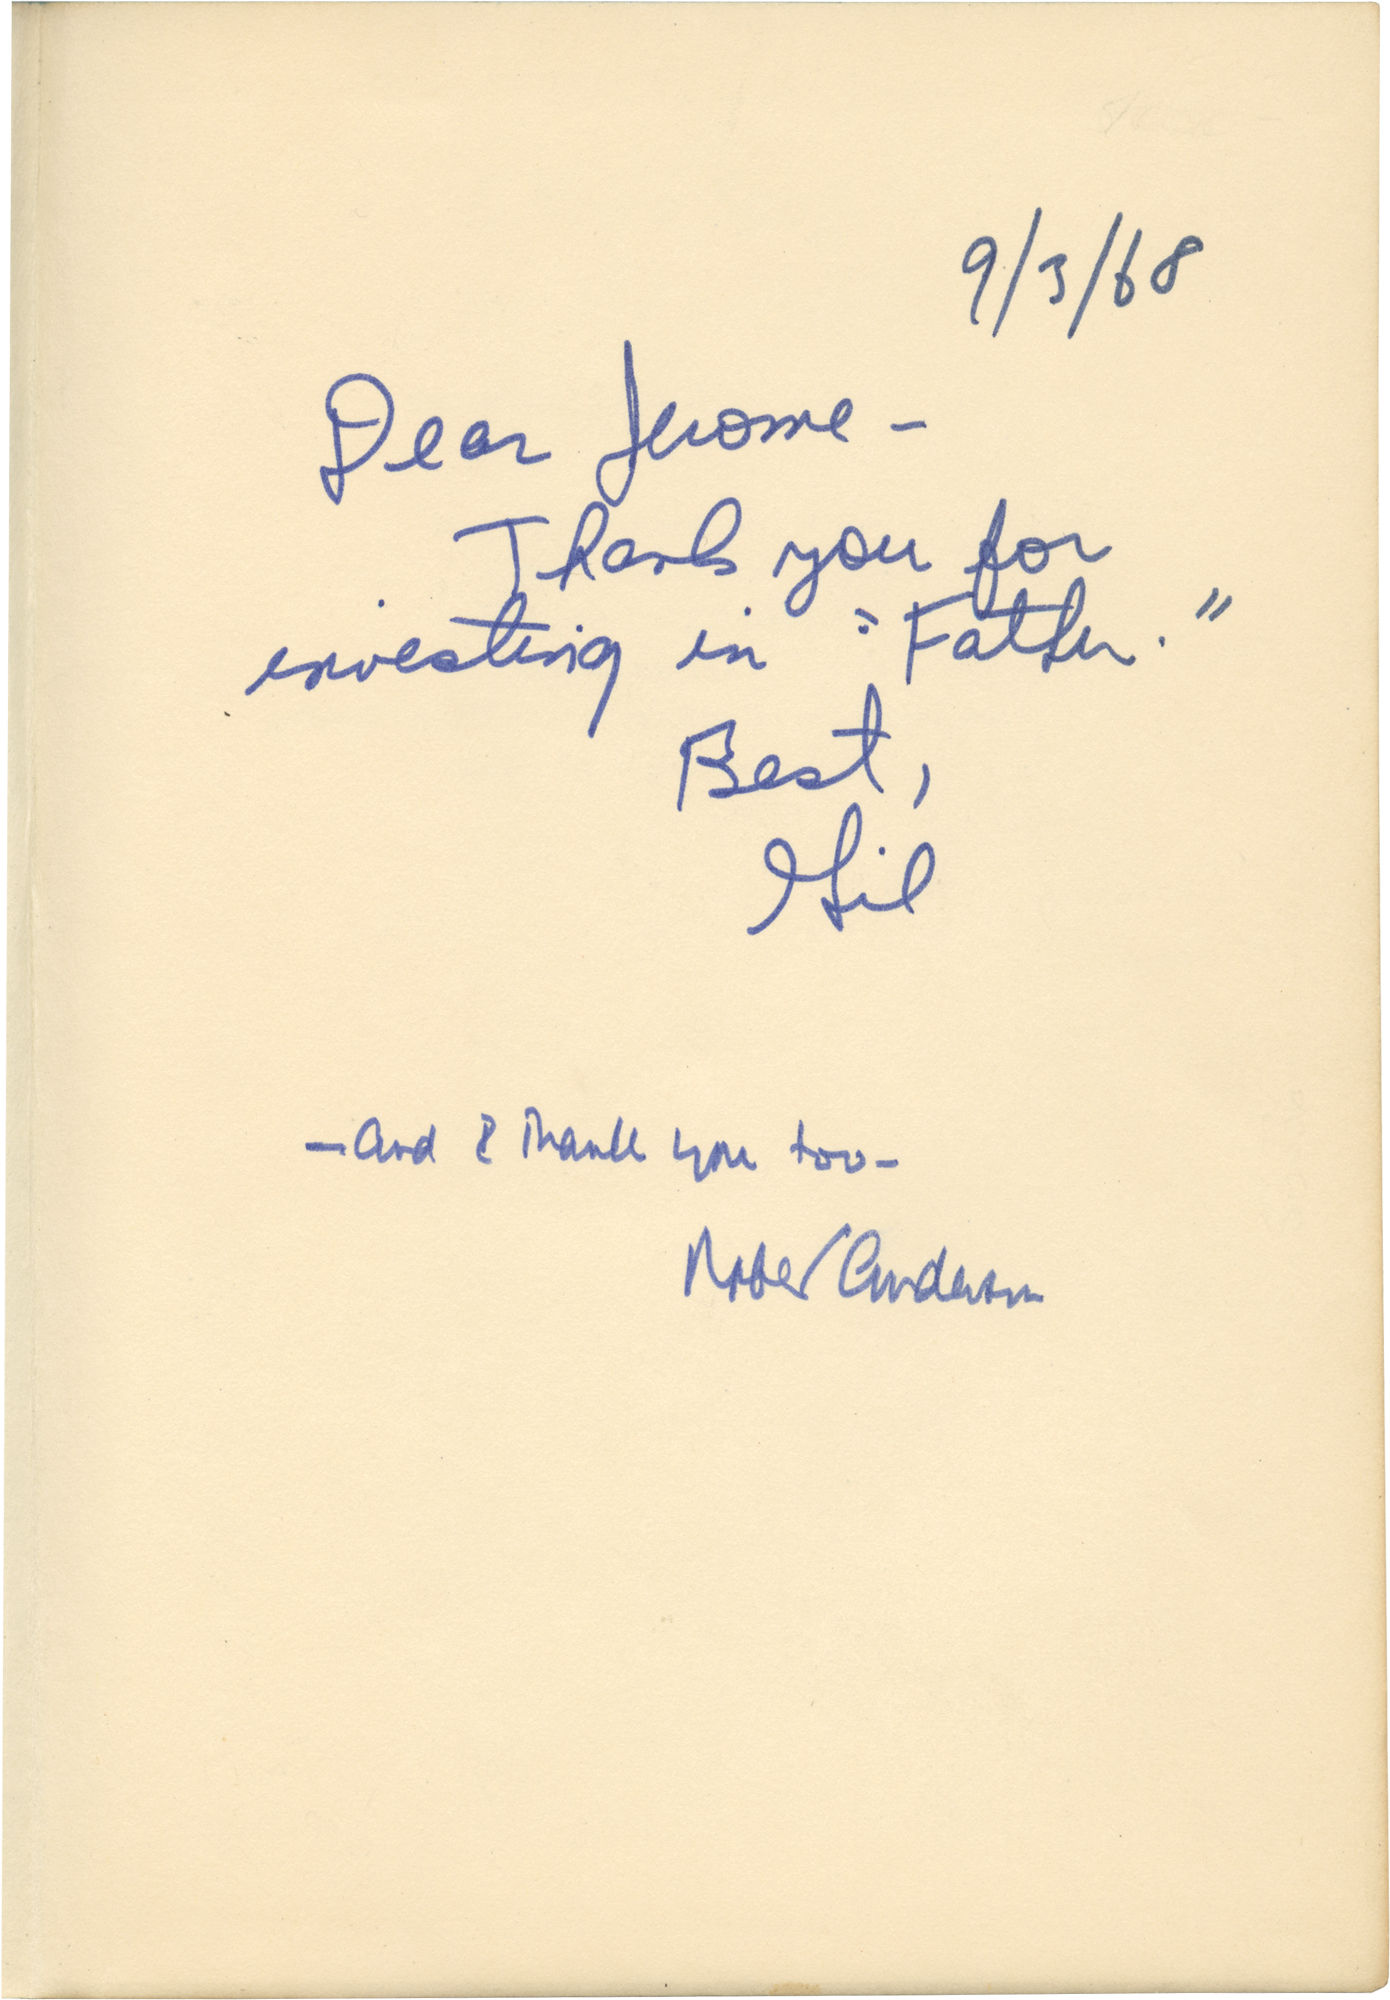 9/3/68
Dear Jerome -
Thank you for
investing in "Father."
Best,
Gil
- And I thank you too -
Robert Anderson